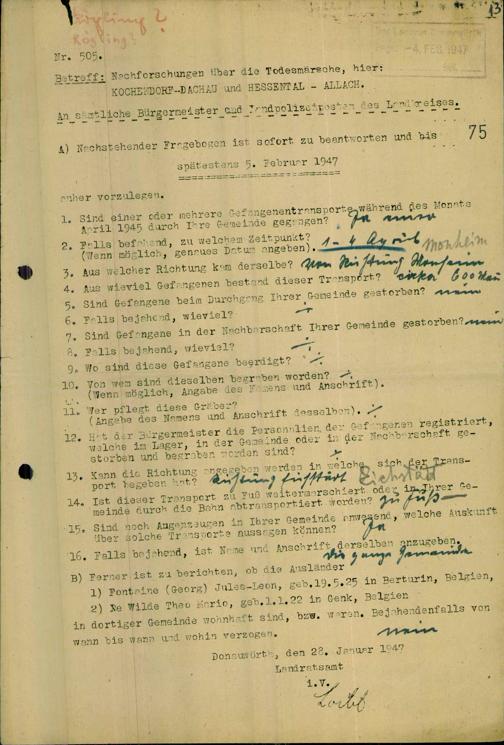 Kögling?
Kögling?
13
4. FEB. 1947
Nr. 505.
Betreff: Nachforschungen über die Todesmärsche, hier:
KOCHENDORF-DACHAU und HESSENTAL - ALLACH.
An sämtliche Bürgermeister und Landpolizeiposten des Landkreises.
75
A) Nachstehender Fragebogen ist sofort zu beantworten und bis
spätestens 5. Februar 1947
anher vorzulegen.
1. Sind einer oder mehrere Gefangenentransporte während des Monats
April 1945 durch Ihre Gemeinde gegangen? Ja einer
2. Falls bejahend, zu welchem Zeitpunkt?
(Wenn möglich, genaues Datum angeben). 1-4 April Monheim
3. Aus welcher Richtung kam derselbe? von Richtung Monheim
4. Aus wieviel Gefangenen bestand dieser Transport? cirka 600 Mann
5. Sind Gefangene beim Durchgang Ihrer Gemeinde gestorben? nein
6. Falls bejahend, wieviel? ÷
7. Sind Gefangene in der Nachbarschaft Ihrer Gemeinde gestorben? nein
8. Falls bejahend, wieviel? ÷
9. Wo sind diese Gefangene beerdigt? ÷
10. Von wem sind dieselben begraben worden? ÷
(Wenn möglich, Angabe des Namens und Anschrift).
11. Wer pflegt diese Gräber?
(Angabe des Namens und Anschrift desselben). ÷
12. Hat der Bürgermeister die Personalien der Gefangenen registriert,
welche im Lager, in der Gemeinde oder in der Nachbarschaft ge-
storben und begraben worden sind? ÷
13. Kann die Richtung angegeben werden in welche sich der Trans-
port begeben hat? Richtung Eichstädt Eichstät
14. Ist dieser Transport zu Fuß weitermarschiert oder in Ihrer Ge-
meinde durch die Bahn abtransportiert worden? zu Fuß
15. Sind noch Augenzeugen in Ihrer Gemeinde anwesend, welche Auskunft
über solche Transporte aussagen können? Ja
16. Falls bejahend, ist Name und Anschrift derselben anzugeben.
die ganze Gemeinde
B) Ferner ist zu berichten, ob die Ausländer
1) Fontaine (Georg) Jules-Leon, geb.19.5.25 in Berturin, Belgien,
2) Xe Wilde Theo Mario, geb.1.1.22 in Genk, Belgien
in dortiger Gemeinde wohnhaft sind, bzw. waren. Bejahendenfalls von
wann bis wann und wohin verzogen. nein
Donauwörth, den 28. Januar 1947
Landratsamt
i.V.